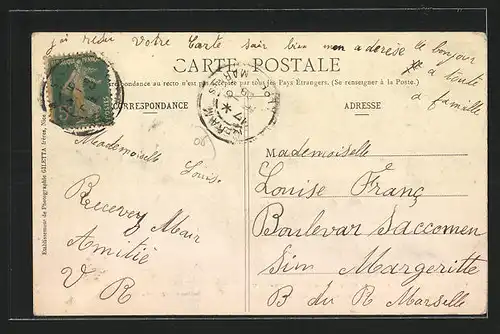 j'ai resu Votre Carte sair bien mon aderese le bonjour
a toute
a famille
CARTE POSTALE
La Correspondance au recto n'est pas acceptée par tous les Pays Étrangers. (Se renseigner à la Poste.)
CORRESPONDANCE
ADRESSE
Mademoiselle
Louise
Recevez Mair
Amitié
V R
Mademoiselle
Louise Franç
Boulevar Saccomen
Sim Margeritte
B du R Marselle
Etablissement de Photographie GILETTA, frères, Nice
06